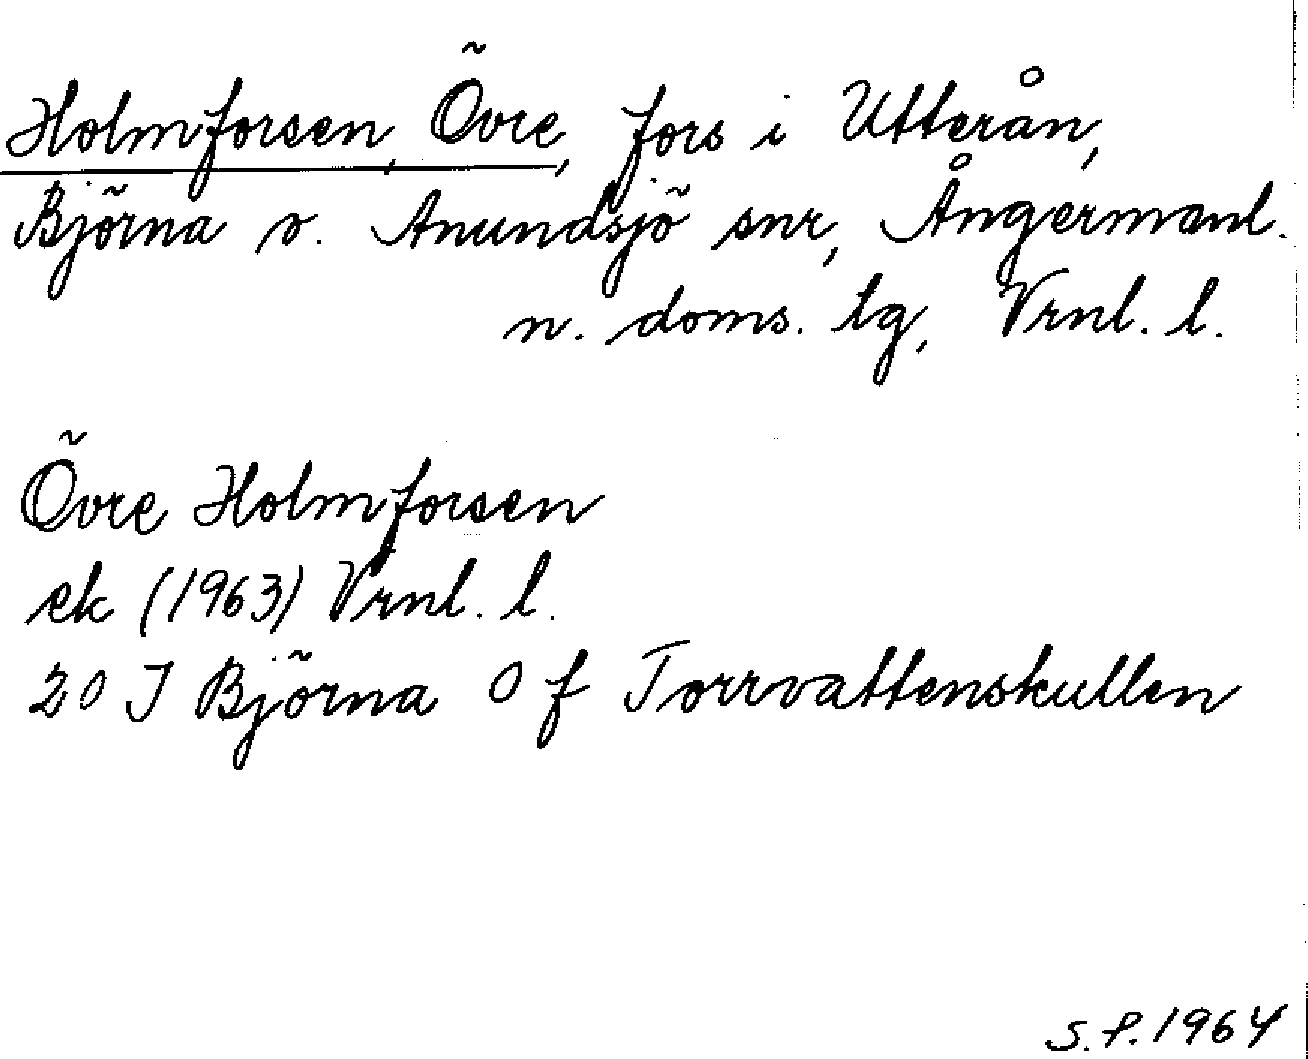 Holmforsen, Övre, fors i Utterån,
Björna o. Anundsjö snr, Ångermanl.
n. doms. lg, Vrnl. l.
Övre Holmforsen
ek (1963) Vrnl. l.
20 J Björna 0 f Torrvattenskullen
S.P. 1964